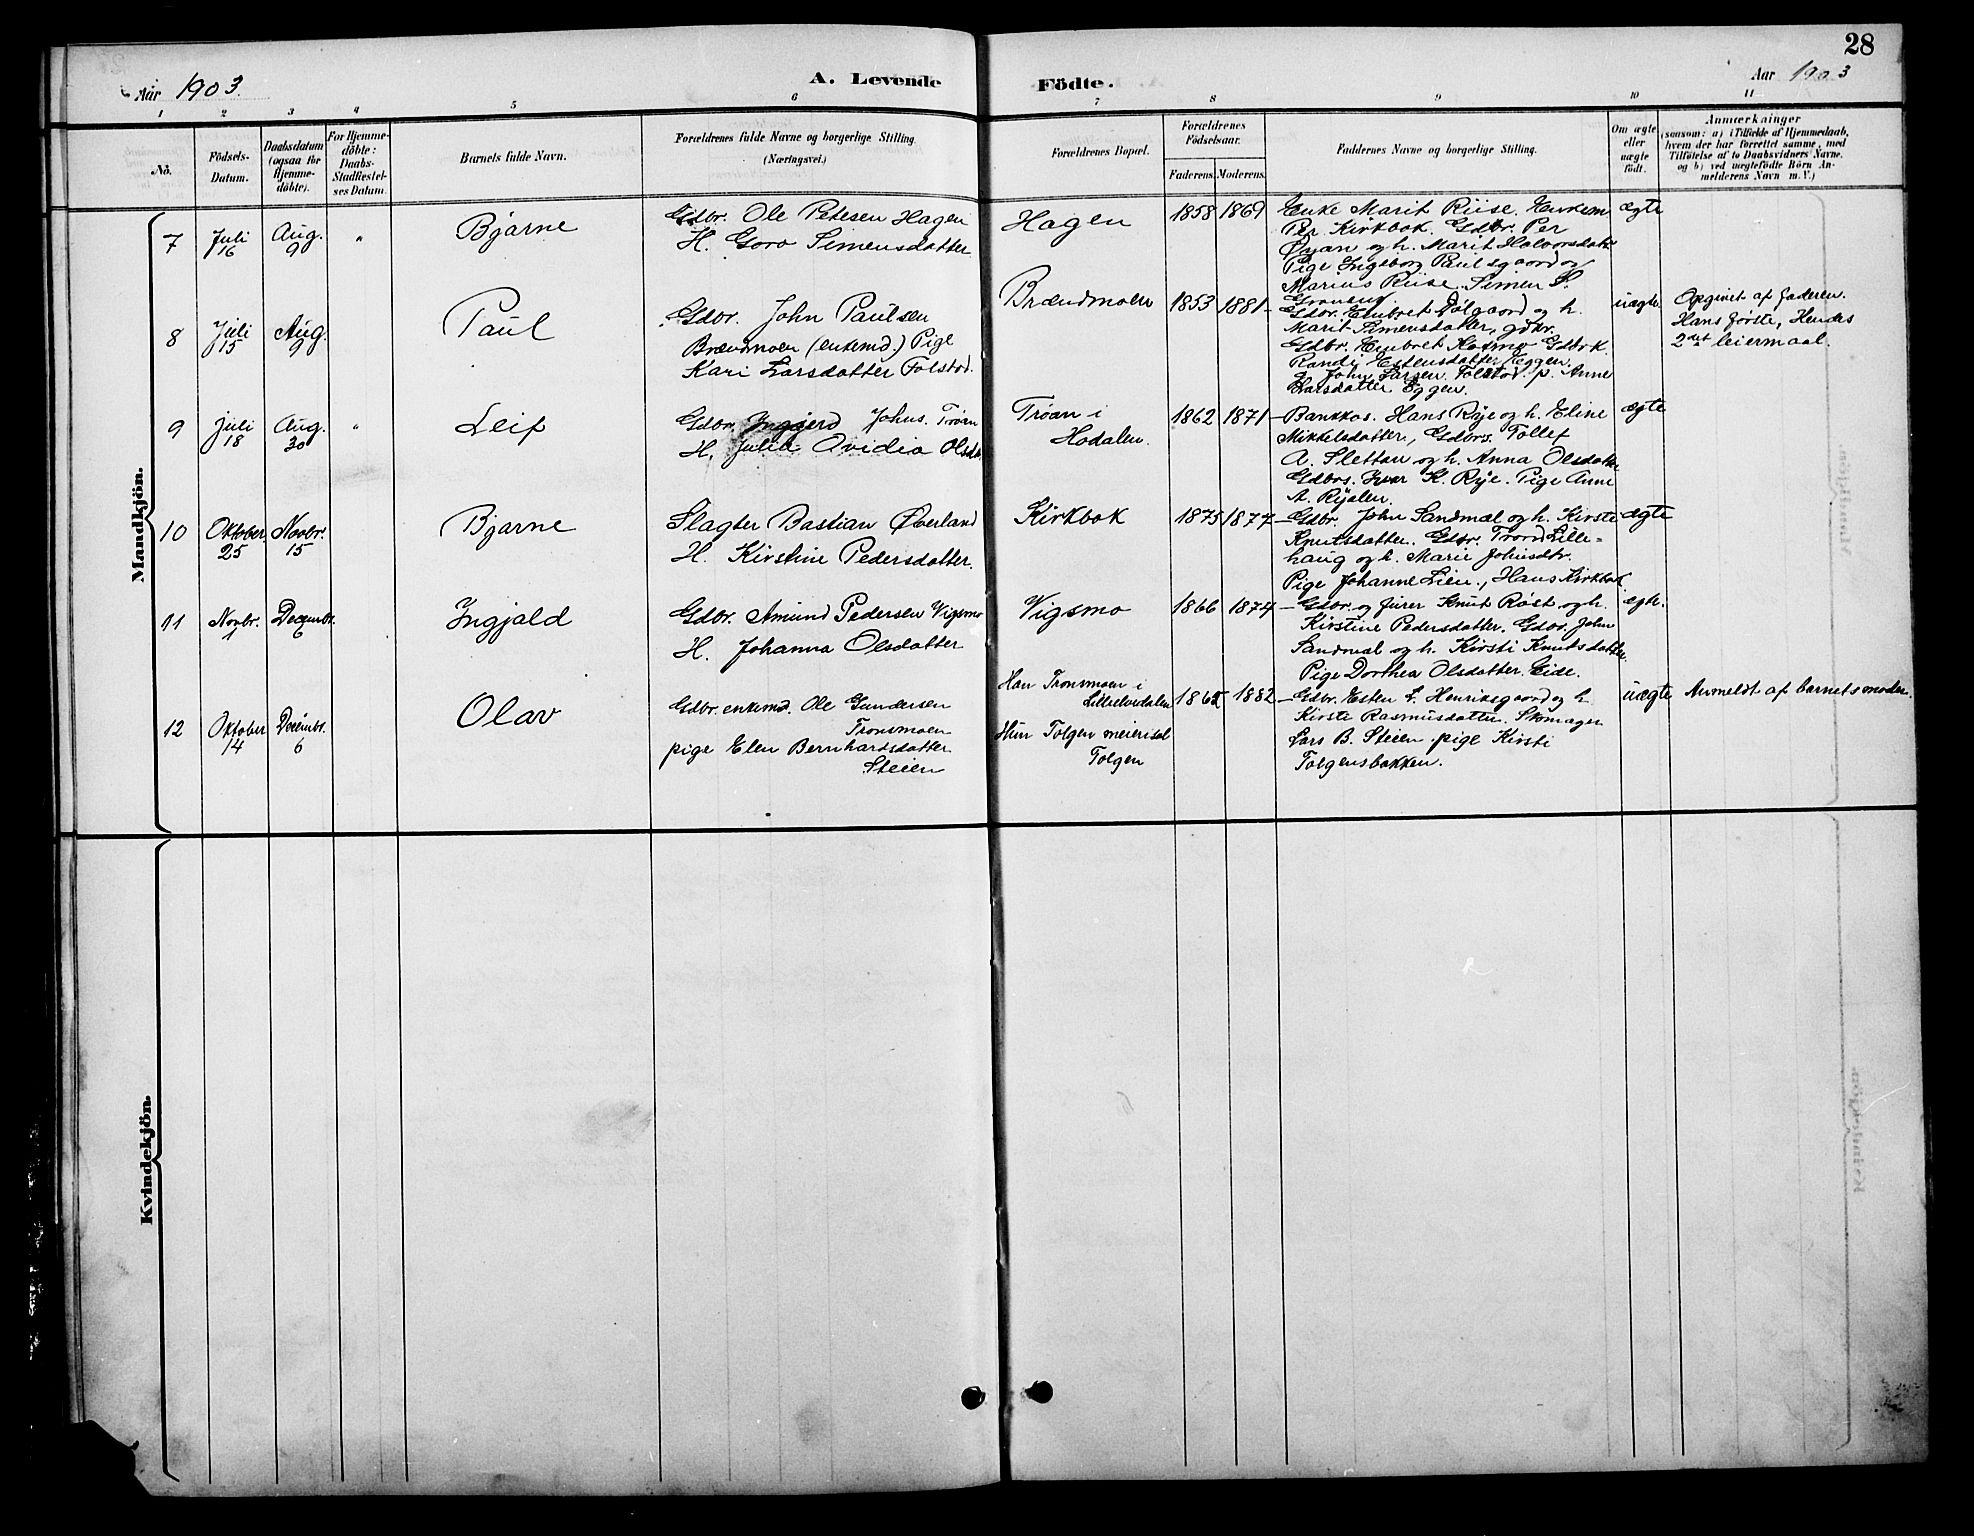 28
Aar 1903
A. Levende
Födte.
Aar 1903
1 2 3 4 5 6 7 8 9 10 11
No.
Födsels-
Datum.
Daabsdatum
(ogsaa for
Hjemme-
döbte).
For Hjemme-
döbte:
Daabs-
Stadfæstel-
ses Datum.
Barnets fulde Navn.
Forældrenes fulde Navne og borgerlige Stilling.
(Næringsvei.)
Forældrenes Bopæl.
Forældrenes
Födselsaar.
Faderens. Moderens.
Faddernes Navne og borgerlige Stilling.
Om ægte
eller
uægte
födt.
Anmærkninger
(saasom: a) i Tilfælde af Hjemmedaab,
hvem der har forrettet samme, med
Tilföielse af to Daabsvidners Navne,
og b) ved uægtefödte Börn An-
melderens Navn m. V.)
Mandkjön.
7
Juli
16
Aug.
9
"
Bjarne
Gdbr. Ole Petesen Hagen
H. Goro Simensdatter
Hagen
1858 1869
Enke Marit Riise. Enkem
Per Kirkbak. Gdbr. Per
Øyan og h. Marit Halvorsdatt
Pige Ingeborg Paulsgaard og
Marius Riise. Simen S.
ægte
8
Juli
15
Aug.
9
Paul
Gdbr. John Paulsen
Brændmoen (enkemd.) Pige
Kari Larsdatter Tolstad.
Brændmoen
1853 1881
Gdbr. Embret Dølgaard og h.
Marit Simensdatter, gdbr.
Gdbr. Embret Kosmo Gdbr. K.
Randi Estensdatter Eggen,
John Larsen Tolstad. p. Anne
Larsdatter Eggen.
uægte
Opgivet af faderen.
Hans første, Hendes
2det leiermaal.
9
Juli
18
Aug.
30
"
Leif
Gdbr. Ingjerd Johns. Trøen
H. Julia Ovidia Olsdat
Trøan i
Hodalen.
1862 1871
Bankkas. Hans Rye og h. Eline
Mikkelsdatter, Gdbrs. Tollef
A. Slettan og h. Anna Olsdatter
Gdbrs. Ivar K. Rye. Pige Anne
A. Ryalen.
ægte
10
Oktober
25
Novbr.
15
Bjarne
Slagter Bastian Øverland
H. Kirstine Pedersdatter.
Kirkbak
1875 1877
Gdbr. John Sandmæl og h. Kirsti
Knutsdatter. Gdbr. Trond Lille-
haug og h. Marie Johnsdtr.
Pige Johanne Lien, Hans Kirkbak
ægte
11
Novbr.
1
Decembr.
6
Ingjald
Gdbr. Amund Pedersen Vigsmo
H. Johanna Olsdatter
Vigsmo
1866 1874
Gdbr. og furer Knut Røst og h.
Kirstine Pedersdatter. Gdbr. John
Sandmæl og h. Kirsti Knutsdatter.
Pige Dorthea Olsdatter Eide.
ægte
12
Oktober
14
Decembr.
6
Olav
Gdbr. enkemd. Ole Gundersen
Tronsmoen
pige Elen Bernhartsdatter
Steien
Han Tronsmoen i
Lilleelvedalen
Hun Tolgen meieri sal
Tolgen
1865 1882
Gdbr. Esten E. Henriksgaard og h.
Kirsti Rasmusdatter. Skomager
Lars B. Steien. pige Kirsti
Tolgensbakken.
uægte
Anmeldt af barnets moder.
Kvindekjön.